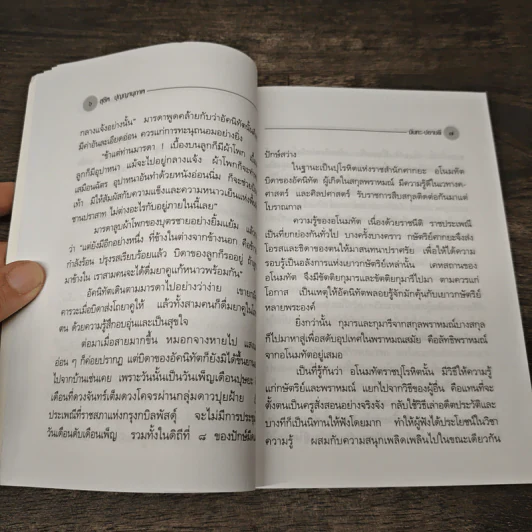 สุชีพ ปุญญานุภาพ
กลางแจ้งอย่างนั้น" มารดาพูดคล้ายกับว่าอัคนิทัตนั้นยัง
มีค่าอันละเอียดอ่อน ควรแก่การทะนุถนอมอย่างยิ่ง
"ข้าแต่ท่านมารดา ! เบื้องบนลูกก็มีผ้าโพก
ลูกก็มีอุปาหนา แม้จะไปอยู่กลางแจ้ง ผ้าโพกก็จะ
เสมือนฉัตร อุปาหนาอันทำด้วยหนังอ่อนนิ่ม ก็จะช่วย
เท้า มิให้สัมผัสกับความแข็งและความหนาวเย็นแห่งพื้น
ชานปราสาท ไม่ต่างอะไรกับอยู่ภายในนี้เลย"
มารดาลูบผ้าโพกของบุตรชายอย่างยิ้มแย้ม แล้ว
ว่า "แต่ยังมีอีกอย่างหนึ่ง ที่ข้างในต่างจากข้างนอก คือข้าว
กำลังร้อน ปรุงรสเรียบร้อยแล้ว บิดาของลูกก็รออยู่
มาข้างใน เราสามคนจะได้ดื่มยาคูแก้หนาวพร้อมกัน"
อัคนิทัตเดินตามมารดาไปอย่างว่าง่าย
คารวะเมื่อบิดาส่งโถยาคูให้ แล้วทั้งสามคนก็ดื่มยาคูใน
ตน ด้วยความรู้สึกอบอุ่นและเป็นสุขใจ
ต่อมาเมื่อสายมากขึ้น หมอกจางหายไป
อ่อน ๆ ก็ค่อยปรากฏ แต่บิดาของอัคนิทัตก็ยังมิได้ขึ้น
ไปจากบ้านเช่นเคย เพราะวันนั้นเป็นวันเพ็ญเดือนปุษยะ
เดือนที่ดวงจันทร์เต็มดวงโคจรผ่านกลุ่มดาวปุยฝ้าย
ประเพณีที่ราชสภาแห่งกรุงกบิลพัสดุ์ จะไม่มีการประชุม
วันเดือนดับเดือนเพ็ญ รวมทั้งในดิถีที่ ๘ ของปักษ์มืด
ปักษ์สว่าง
ในฐานะเป็นปุโรหิตแห่งราชสำนักศากยะ อโนมทัต
บิดาของอัคนิทัต ผู้เกิดในสกุลพราหมณ์ มีความรู้ดีในเวทางค-
ศาสตร์ และศิลปศาสตร์ รับราชการสืบสกุลติดต่อกันมาแต่
โบราณกาล
ความรู้ของอโนมทัต เนื่องด้วยราชนีติ ราชประเพณี
เป็นที่ยกย่องกันทั่วไป บางครั้งบางคราว กษัตริย์ศากยะจึงส่ง
โอรสและธิดาของตนให้มาสนทนาปราศรัย เพื่อให้ได้ความ
รอบรู้เป็นอลังการแห่งเยาวกษัตริย์เหล่านั้น เคหสถานของ
อโนมทัต จึงมีขัตติยกุมารและขัตติยกุมารีไปมา ตามควรแก่
โอกาส เป็นเหตุให้อัคนิทัตพลอยรู้จักมักคุ้นกับเยาวกษัตริย์
หลายพระองค์
ยิ่งกว่านั้น กุมารและกุมารีจากสกุลพราหมณ์บางสกุล
ก็ไปมาหาสู่เพื่อสดับอุปเทศในพราหมณสมัย คือลัทธิพราหมณ์
จากอโนมทัตอยู่เสมอ
เป็นที่รู้กันว่า อโนมทัตราชปุโรหิตนั้น มีวิธีให้ความรู้
แก่กษัตริย์และพราหมณ์ แยกไปจากวิธีของผู้อื่น คือแทนที่จะ
ตั้งตนเป็นครูสั่งสอนอย่างจริงจัง กลับใช้วิธีเล่าอดีตประวัติและ
บางทีก็เป็นนิทานให้ฟังโดยมาก ทำให้ผู้ฟังได้ประโยชน์ในวิชา
ความรู้ ผสมกับความสนุกเพลิดเพลินไปในขณะเดียวกัน